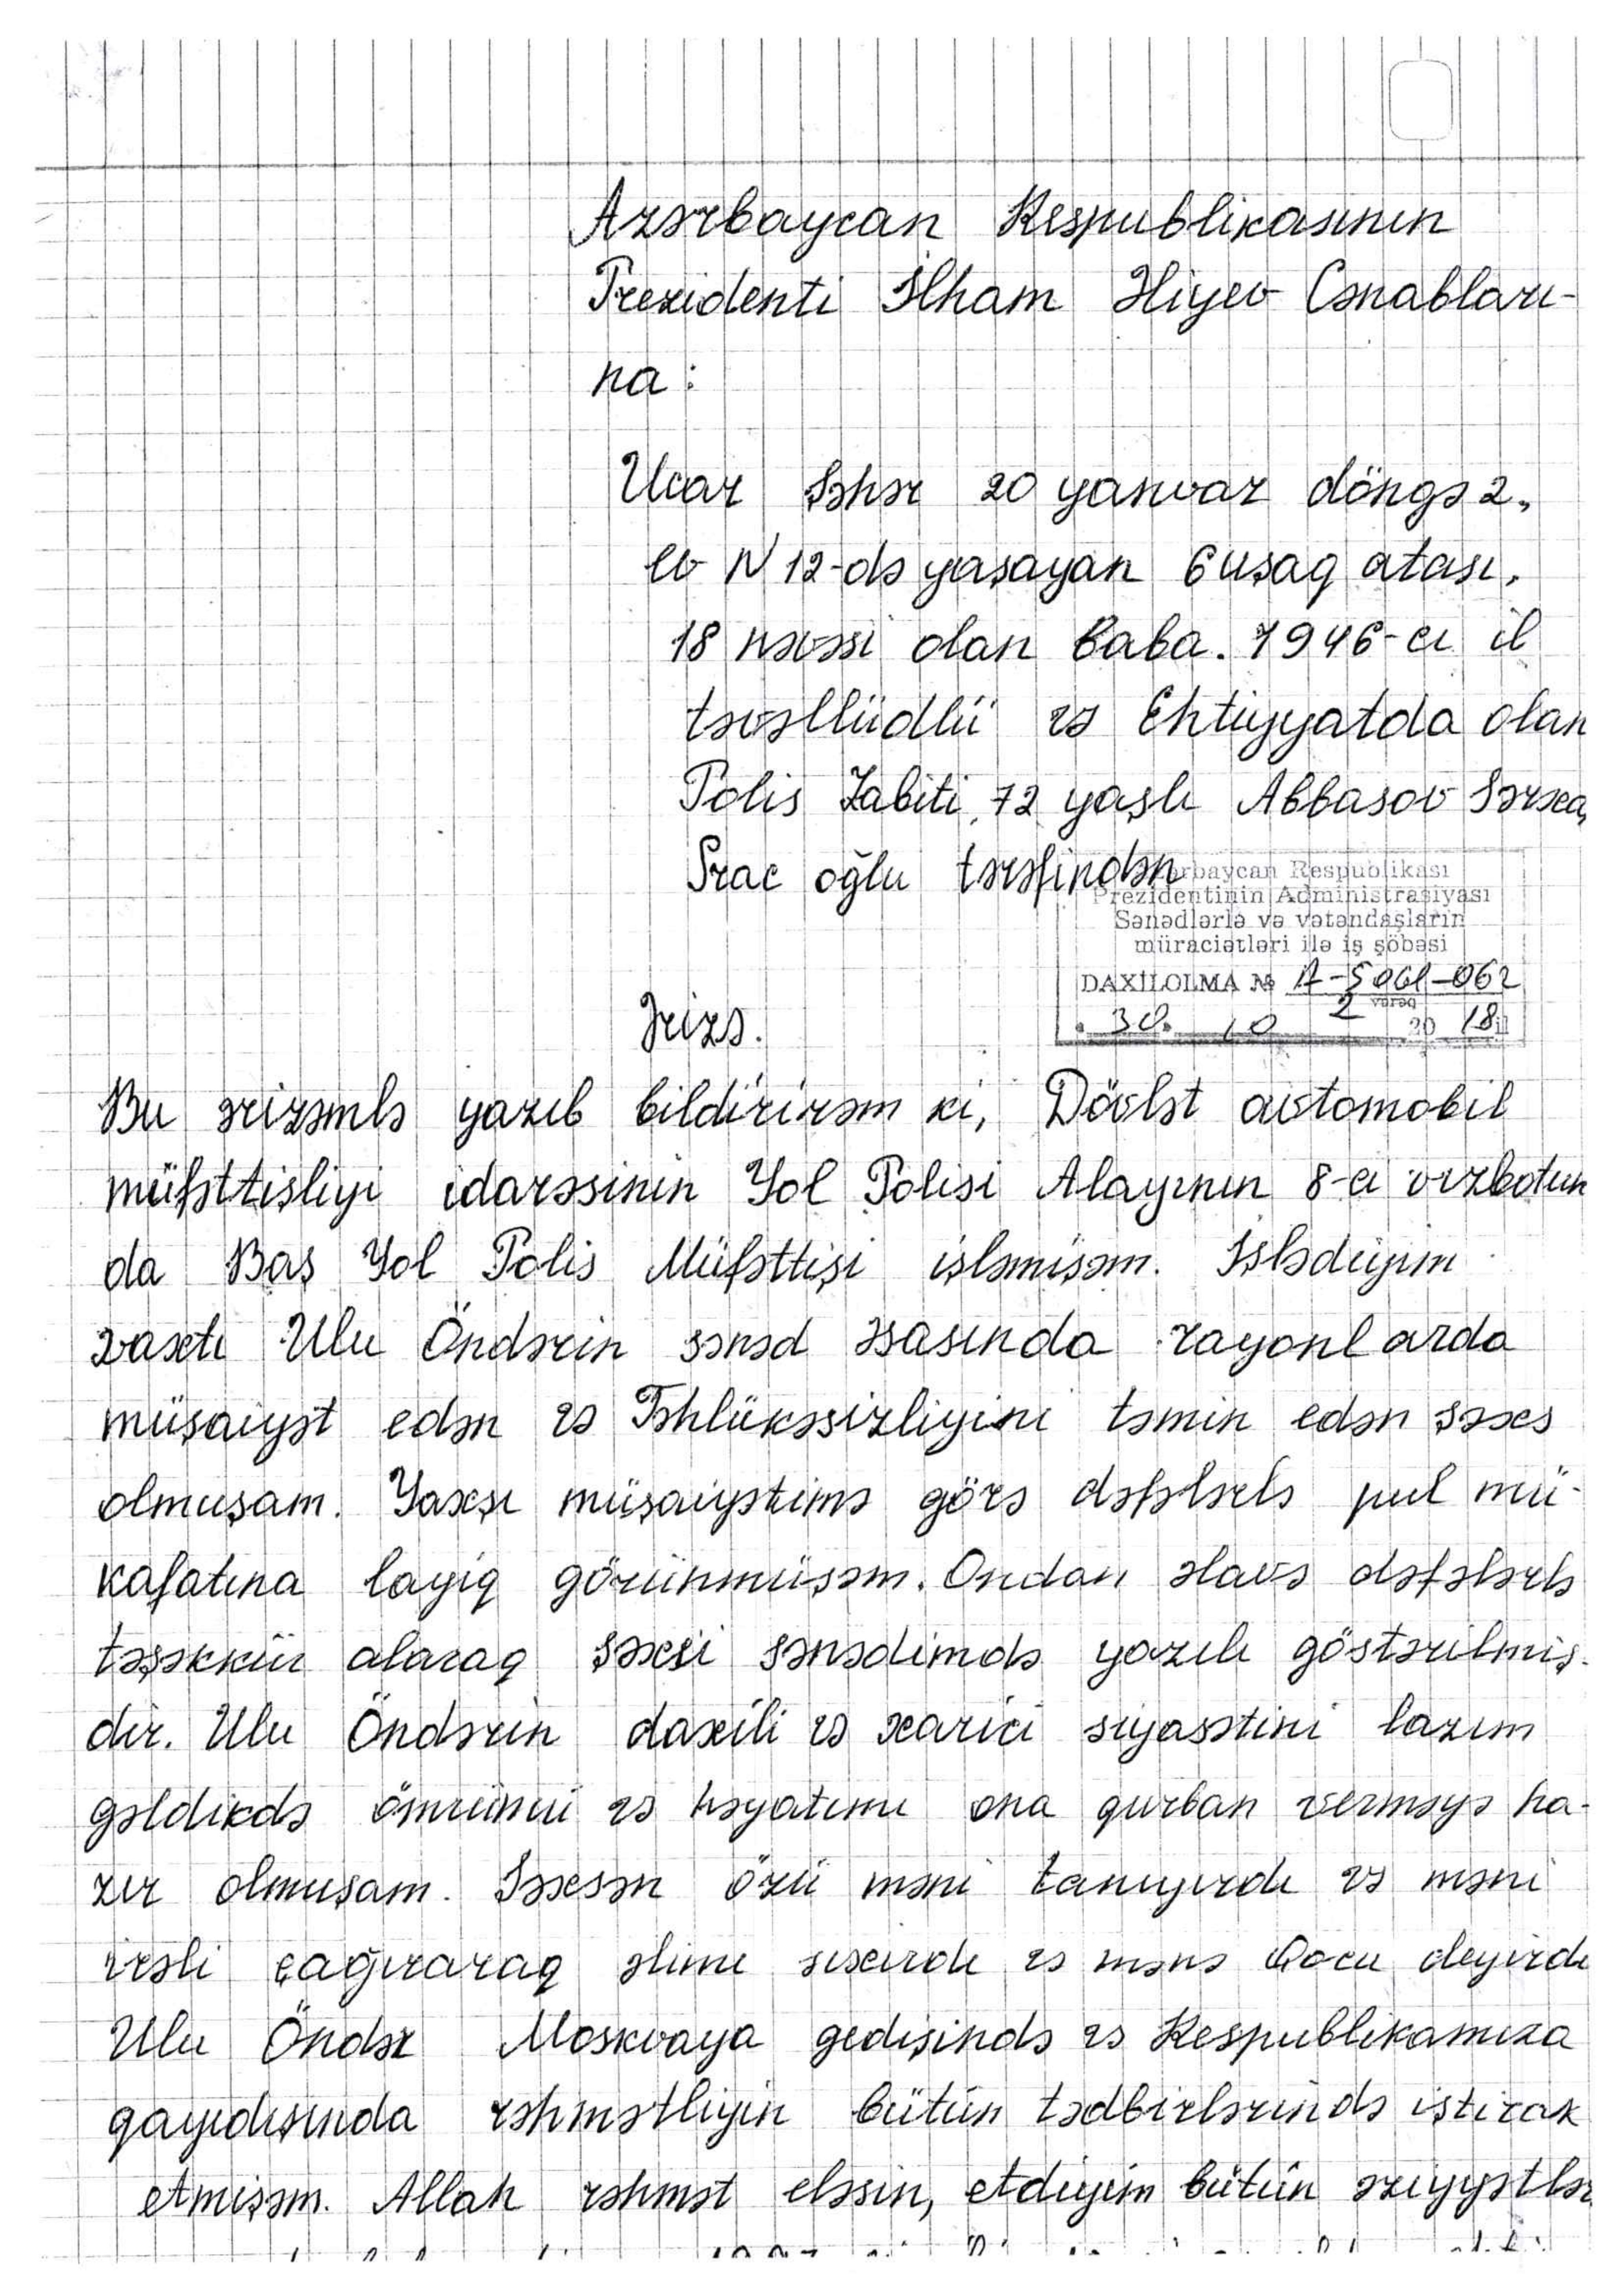 Azərbaycan Respublikasının
Prezidenti İlham Əliyev Cənabları-
na:
Ucar şəhər 20 yanvar döngə 2,
ev N 12-də yaşayan 6 uşaq atası,
18 nəvəsi olan baba. 1946-cı il
təvəllüdlü və Ehtiyyatda olan
Polis Zabiti, 72 yaşlı Abbasov
oğlu tərəfindən
Azərbaycan Respublikası
Prezidentinin Administrasiyası
Sənədlərlə və vətəndaşların
müraciətləri ilə iş şöbəsi
DAXİLOLMA № A-5061-062
2 vərəq
30. 10 2018il
Ərizə.
Bu ərizəmlə yazıb bildirirəm ki, Dövlət avtomobil
müfəttişliyi idarəsinin Yol Polisi Alayının 8-ci vzbotun
da Baş Yol Polis Müfəttişi işləmişəm. İşlədiyim
vaxtı Ulu Öndərin sənəd əsasında rayonlarda
müşaiyət edən və Təhlükəsizliyini təmin edən şəxs
olmuşam. Yaxşı müşaiyətimə görə dəfələrlə pul mü-
kafatına layiq görünmüşəm. Ondan əlavə dəfələrlə
təşəkkür alaraq şəxsi sənədimdə yazılı göstərilmiş-
dir. Ulu Öndərin daxili və xarici siyasətini lazım
gəldikdə ömrümü və həyatımı ona qurban verməyə ha-
zır olmuşam. Şəxsən özü məni tanıyırdı və məni
irəli çağıraraq əlimi sıxırdı və mənə Qocu deyirdi
Ulu Öndər Moskvaya gedişində və Respublikamıza
qayıdışında rəhmətliyin bütün tədbirlərində iştirak
etmişəm. Allah rəhmət eləsin, etdiyim bütün əziyyətlər